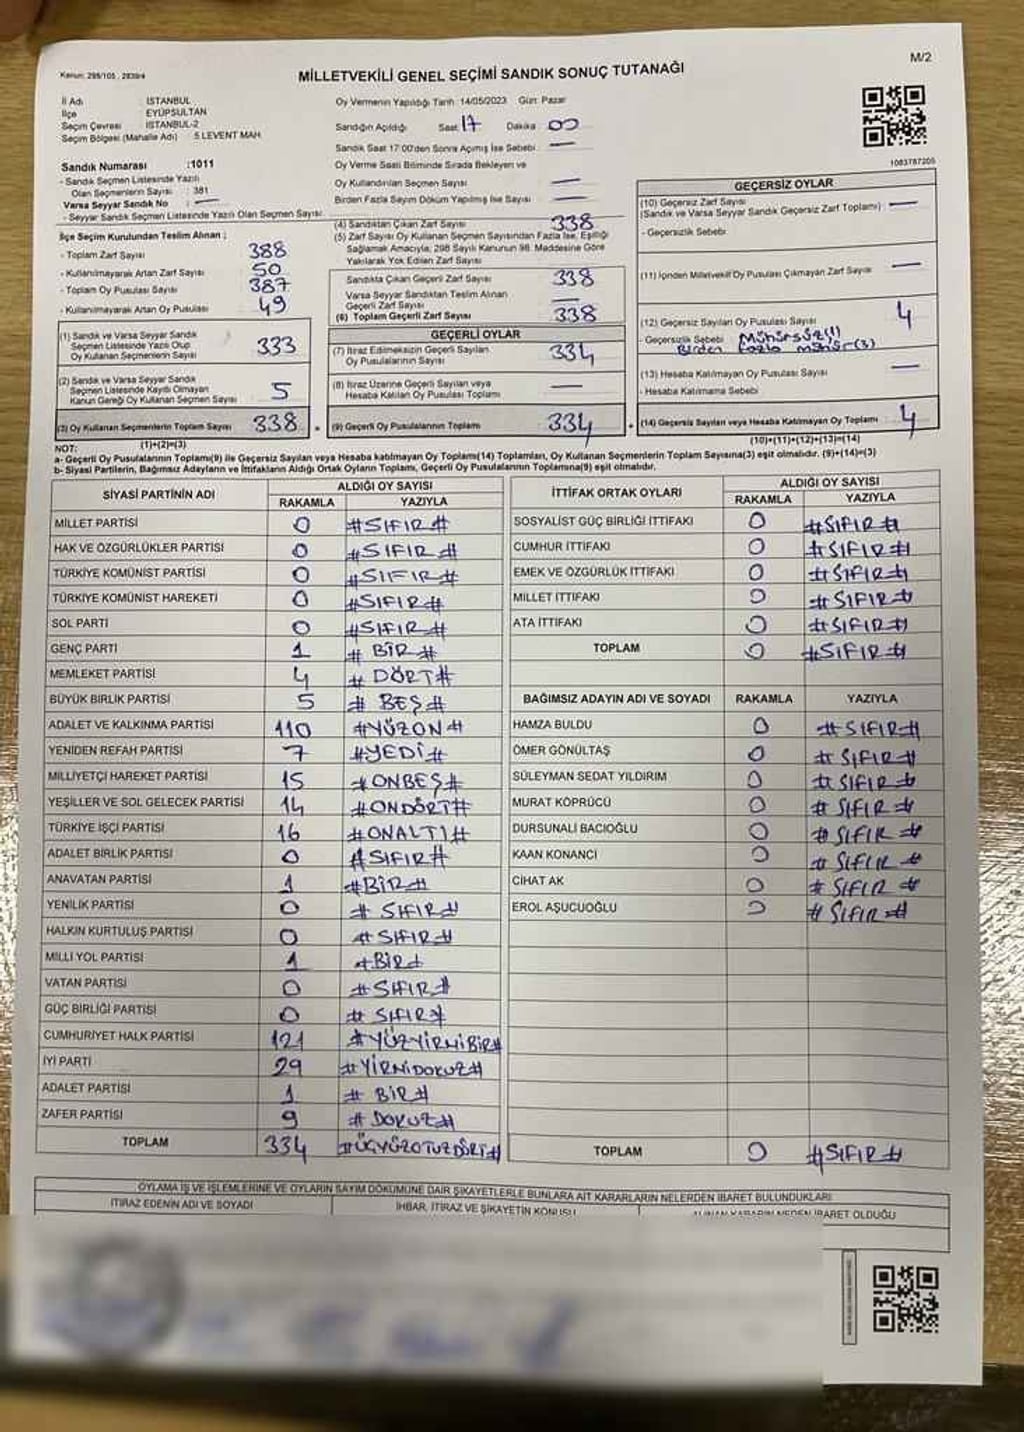 M/2
Kanun: 298/105 , 2839/4
MİLLETVEKİLİ GENEL SEÇİMİ SANDIK SONUÇ TUTANAĞI
İl Adı : İSTANBUL
İlçe : EYÜPSULTAN
Seçim Çevresi : İSTANBUL-2
Seçim Bölgesi (Mahalle Adı) : 5.LEVENT MAH.
Sandık Numarası :1011
- Sandık Seçmen Listesinde Yazılı
Olan Seçmenlerin Sayısı : 381
Varsa Seyyar Sandık No : —
- Seyyar Sandık Seçmen Listesinde Yazılı Olan Seçmen Sayısı:
İlçe Seçim Kurulundan Teslim Alınan ;
- Toplam Zarf Sayısı 388
- Kullanılmayarak Artan Zarf Sayısı 50
- Toplam Oy Pusulası Sayısı 387
- Kullanılmayarak Artan Oy Pusulası 49
(1) Sandık ve Varsa Seyyar Sandık
Seçmen Listesinde Yazılı Olup
Oy Kullanan Seçmenlerin Sayısı 333
(2) Sandık ve Varsa Seyyar Sandık
Seçmen Listesinde Kayıtlı Olmayan
Kanun Gereği Oy Kullanan Seçmen Sayısı 5
(3) Oy Kullanan Seçmenlerin Toplam Sayısı 338
(1)+(2)=(3)
Oy Vermenin Yapıldığı Tarih :14/05/2023 Gün: Pazar
Sandığın Açıldığı Saat: 17 Dakika 00
Sandık Saat 17:00'den Sonra Açılmış İse Sebebi : —
Oy Verme Saati Bitiminde Sırada Bekleyen ve
Oy Kullandırılan Seçmen Sayısı —
Birden Fazla Sayım Döküm Yapılmış İse Sayısı —
(4) Sandıktan Çıkan Zarf Sayısı 338
(5) Zarf Sayısı Oy Kullanan Seçmen Sayısından Fazla İse, Eşitliği
Sağlamak Amacıyla, 298 Sayılı Kanunun 98. Maddesine Göre
Yakılarak Yok Edilen Zarf Sayısı
Sandıkta Çıkan Geçerli Zarf Sayısı 338
Varsa Seyyar Sandıktan Teslim Alınan
Geçerli Zarf Sayısı —
(6) Toplam Geçerli Zarf Sayısı 338
GEÇERLİ OYLAR
(7) İtiraz Edilmeksizin Geçerli Sayılan
Oy Pusulalarının Sayısı 334
(8) İtiraz Üzerine Geçerli Sayılan veya
Hesaba Katılan Oy Pusulası Toplamı —
(9) Geçerli Oy Pusulalarının Toplamı 334
1083787205
GEÇERSİZ OYLAR
(10) Geçersiz Zarf Sayısı
(Sandık ve Varsa Seyyar Sandık Geçersiz Zarf Toplamı) : —
- Geçersizlik Sebebi
(11) İçinden Milletvekili Oy Pusulası Çıkmayan Zarf Sayısı —
(12) Geçersiz Sayılan Oy Pusulası Sayısı 4
- Geçersizlik Sebebi Mühürsüz(1)
Birden fazla mühür(3)
(13) Hesaba Katılmayan Oy Pusulası Sayısı —
- Hesaba Katılmama Sebebi
(14) Geçersiz Sayılan veya Hesaba Katılmayan Oy Toplamı 4
(10)+(11)+(12)+(13)=(14)
NOT:
a- Geçerli Oy Pusulalarının Toplamı(9) ile Geçersiz Sayılan veya Hesaba katılmayan Oy Toplamı(14) Toplamları, Oy Kullanan Seçmenlerin Toplam Sayısına(3) eşit olmalıdır. (9)+(14)=(3)
b- Siyasi Partilerin, Bağımsız Adayların ve İttifakların Aldığı Ortak Oyların Toplamı, Geçerli Oy Pusulalarının Toplamına(9) eşit olmalıdır.
SİYASİ PARTİNİN ADI ALDIĞI OY SAYISI
RAKAMLA YAZIYLA
MİLLET PARTİSİ 0 #SIFIR#
HAK VE ÖZGÜRLÜKLER PARTİSİ 0 #SIFIR#
TÜRKİYE KOMÜNİST PARTİSİ 0 #SIFIR#
TÜRKİYE KOMÜNİST HAREKETİ 0 #SIFIR#
SOL PARTİ 0 #SIFIR#
GENÇ PARTİ 1 # BİR #
MEMLEKET PARTİSİ 4 # DÖRT#
BÜYÜK BİRLİK PARTİSİ 5 # BEŞ#
ADALET VE KALKINMA PARTİSİ 110 #YÜZON#
YENİDEN REFAH PARTİSİ 7 #YEDİ#
MİLLİYETÇİ HAREKET PARTİSİ 15 #ONBEŞ#
YEŞİLLER VE SOL GELECEK PARTİSİ 14 #ONDÖRT#
TÜRKİYE İŞÇİ PARTİSİ 16 #ONALTI#
ADALET BİRLİK PARTİSİ 0 #SIFIR#
ANAVATAN PARTİSİ 1 #BİR#
YENİLİK PARTİSİ 0 # SIFIR#
HALKIN KURTULUŞ PARTİSİ 0 #SIFIR#
MİLLİ YOL PARTİSİ 1 #BİR#
VATAN PARTİSİ 0 #SIFIR#
GÜÇ BİRLİĞİ PARTİSİ 0 # SIFIR#
CUMHURİYET HALK PARTİSİ 121 #YÜZYİRMİBİR#
İYİ PARTİ 29 #YİRMİDOKUZ#
ADALET PARTİSİ 1 # BİR#
ZAFER PARTİSİ 9 # DOKUZ#
TOPLAM 334 #ÜÇYÜZOTUZDÖRT#
İTTİFAK ORTAK OYLARI ALDIĞI OY SAYISI
RAKAMLA YAZIYLA
SOSYALİST GÜÇ BİRLİĞİ İTTİFAKI 0 #SIFIR#
CUMHUR İTTİFAKI 0 #SIFIR#
EMEK VE ÖZGÜRLÜK İTTİFAKI 0 #SIFIR#
MİLLET İTTİFAKI 0 #SIFIR#
ATA İTTİFAKI 0 #SIFIR#
TOPLAM 0 #SIFIR#
BAĞIMSIZ ADAYIN ADI VE SOYADI RAKAMLA YAZIYLA
HAMZA BULDU 0 #SIFIR#
ÖMER GÖNÜLTAŞ 0 # SIFIR#
SÜLEYMAN SEDAT YILDIRIM 0 #SIFIR#
MURAT KÖPRÜCÜ 0 # SIFIR #
DURSUNALİ BACIOĞLU 0 #SIFIR #
KAAN KONANCI 0 # SIFIR #
CİHAT AK 0 # SIFIR #
EROL AŞUCUOĞLU 0 # SIFIR#
TOPLAM 0 #SIFIR#
OYLAMA İŞ VE İŞLEMLERİNE VE OYLARIN SAYIM DÖKÜMÜNE DAİR ŞİKAYETLERLE BUNLARA AİT KARARLARIN NELERDEN İBARET BULUNDUKLARI
İTİRAZ EDENİN ADI VE SOYADI İHBAR, İTİRAZ VE ŞİKAYETİN KONUSU ALINAN KARARIN NEDEN İBARET OLDUĞU